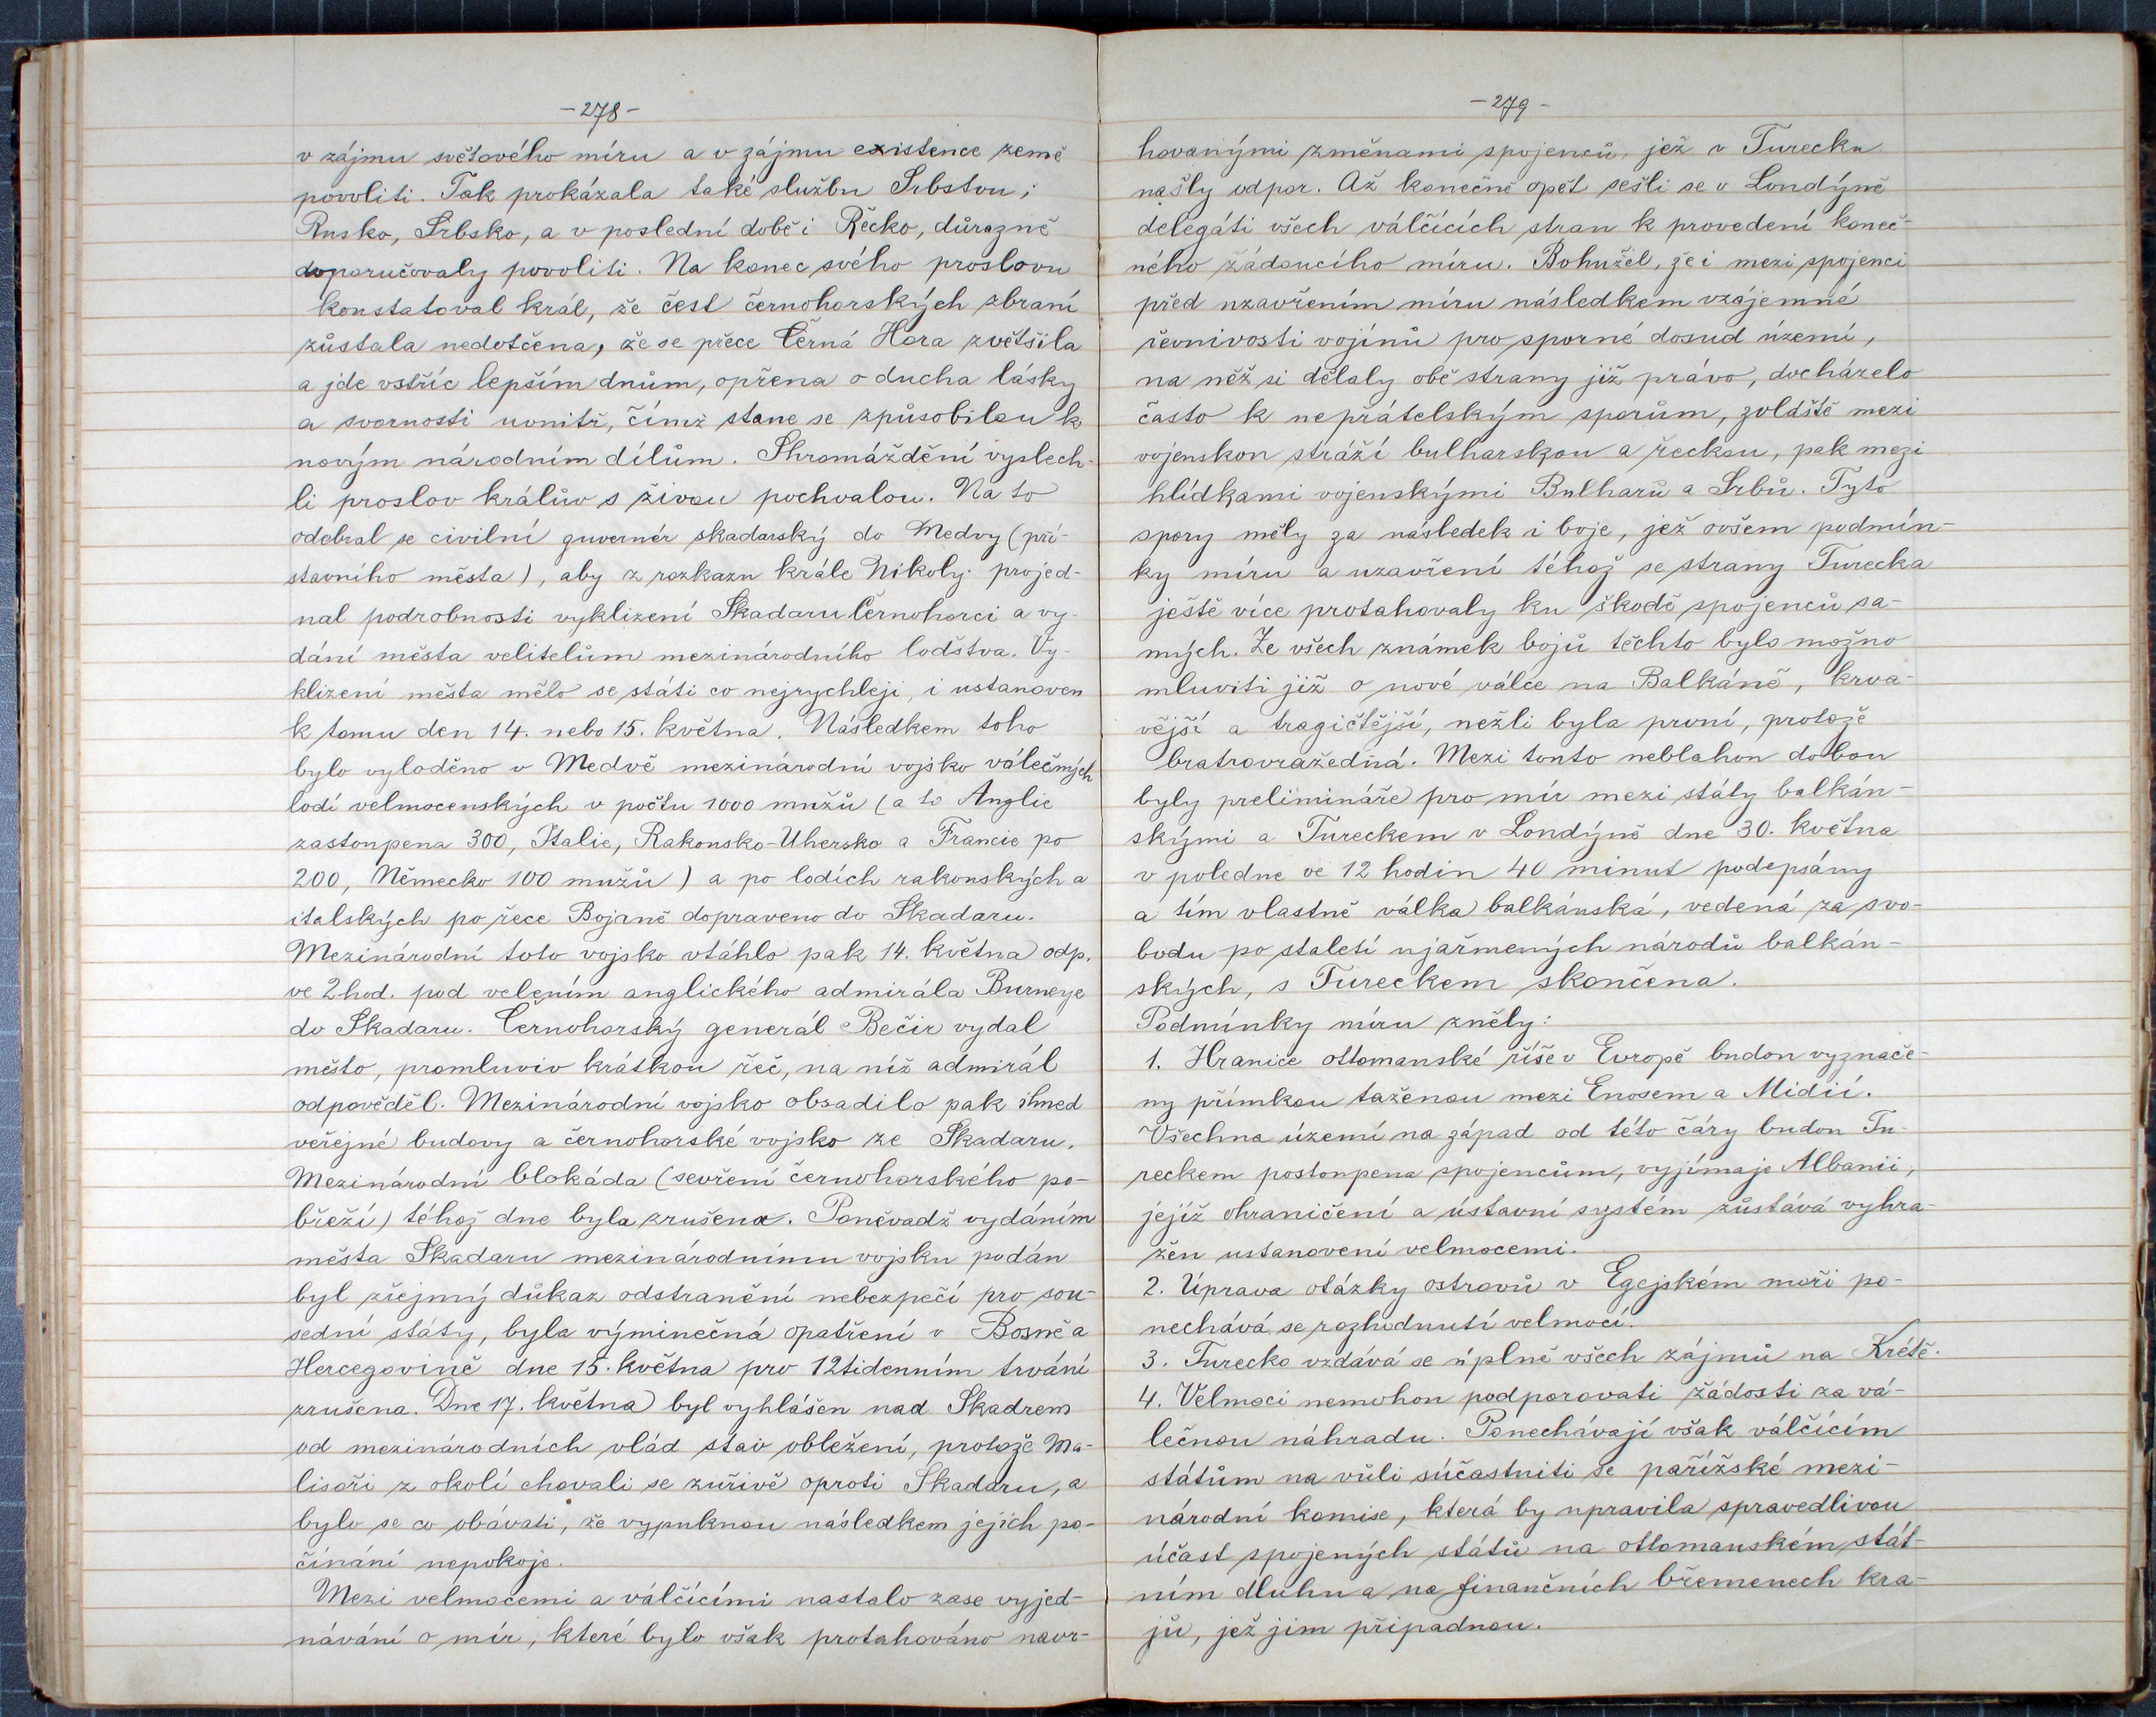 -278-
v zájmu světového míru a v zájmu existence země
povoliti. Tak prokázala také službu Srbstvu;
Rusko, Srbsko, a v poslední době i Řecko, důrazně
doporučovaly povoliti. Na konec svého proslovu
konstatoval král, že čest černohorských zbraní
zůstala nedotčena, že se přece Černá Hora zvětšila
a jde vstříc lepším dnům, opřena o ducha lásky
a svornosti uvnitř, čímž stane se způsobilou k
novým národním dílům. Shromáždění vyslech-
li proslov králův s živou pochvalou. Na to
odebral se civilní guvernér skadarský do Medvy (pří-
stavního města), aby z rozkazu krále Nikoly projed-
nal podrobnosti vyklizení Skadaru Černohorci a vy-
dání města velitelům mezinárodního loďstva. Vy-
klizení města mělo se státi co nejrychleji, i ustanoven
k tomu den 14. nebo 15. května. Následkem toho
bylo vyloděno v Medvě mezinárodní vojsko válečných
lodí velmocenských v počtu 1000 mužů (a to Anglie
zastoupena 300, Italie, Rakousko-Uhersko a Francie po
200, Německo 100 mužů) a po lodích rakouských a
italských po řece Bojaně dopraveno do Skadaru.
Mezinárodní toto vojsko vtáhlo pak 14. května odp.
ve 2 hod. pod velením anglického admirála Burneye
do Skadaru. Černohorský generál Bečir vydal
město, promluviv krátkou řeč, na níž admirál
odpověděl. Mezinárodní vojsko obsadilo pak ihned
veřejné budovy a černohorské vojsko ze Skadaru.
Mezinárodní blokáda (sevření černohorského po-
břeží) téhož dne byla zrušena. Poněvadž vydáním
města Skadaru mezinárodnímu vojsku podán
byl zřejmý důkaz odstranění nebezpečí pro sou-
sední státy, byla výminečná opatření v Bosně a
Hercegovině dne 15. května pro 12tidenním trvání
zrušena. Dne 17. května byl vyhlášen nad Skadrem
od mezinárodních vlád stav obležení, protože Ma-
lisoři z okolí chovali se zuřivě oproti Skadaru, a
bylo se co obávati, že vypuknou následkem jejich po-
čínání nepokoje.
Mezi velmocemi a válčícími nastalo zase vyjed-
návání o mír, které bylo však protahováno navr-
-279-
hovanými změnami spojenců, jež v Turecku
našly odpor. Až konečně opět sešli se v Londýně
delegáti všech válčících stran k provedení koneč-
ného žádoucího míru. Bohužel, že i mezi spojenci
před uzavřením míru následkem vzájemné
řevnivosti vojínů pro sporné dosud území,
na něž si dělaly obě strany již právo, docházelo
často k nepřátelským sporům, zvláště mezi
vojenskou stráží bulharskou a řeckou, pak mezi
hlídkami vojenskými Bulharů a Srbů. Tyto
spory měly za následek i boje, jež ovšem podmín-
ky míru a uzavření téhož se strany Turecka
ještě více protahovaly ku škodě spojenců sa-
mých. Ze všech známek bojů těchto bylo možno
mluviti již o nové válce na Balkáně, krva-
vější a tragičtější, nežli byla první, protože
bratrovražedná. Mezi touto neblahou dobou
byly prelimináře pro mír mezi státy balkán-
skými a Tureckem v Londýně dne 30. května
v poledne ve 12 hodin 40 minut podepsány
a tím vlastně válka balkánská, vedená za svo-
bodu po staletí ujařmených národů balkán-
ských, s Tureckem skončena.
Podmínky míru zněly:
1. Hranice ottomanské říše v Evropě budou vyznače-
ny přímkou taženou mezi Enosem a Midií.
Všechna území na západ od této čáry budou Tu-
reckem postoupena spojencům, vyjímaje Albanii,
jejíž ohraničení a ústavní systém zůstává vyhra-
žen ustanovení velmocemi.
2. Úprava otázky ostrovů v Egejském moři po-
nechává se rozhodnutí velmocí.
3. Turecko vzdává se úplně všech zájmů na Krétě.
4. Velmoci nemohou podporovati žádosti za vá-
lečnou náhradu. Ponechávají však válčícím
státům na vůli súčastniti se pařížské mezi-
národní komise, která by upravila spravedlivou
účast spojených států na ottomanském stát-
ním dluhu a na finančních břemenech kra-
jů, jež jim připadnou.